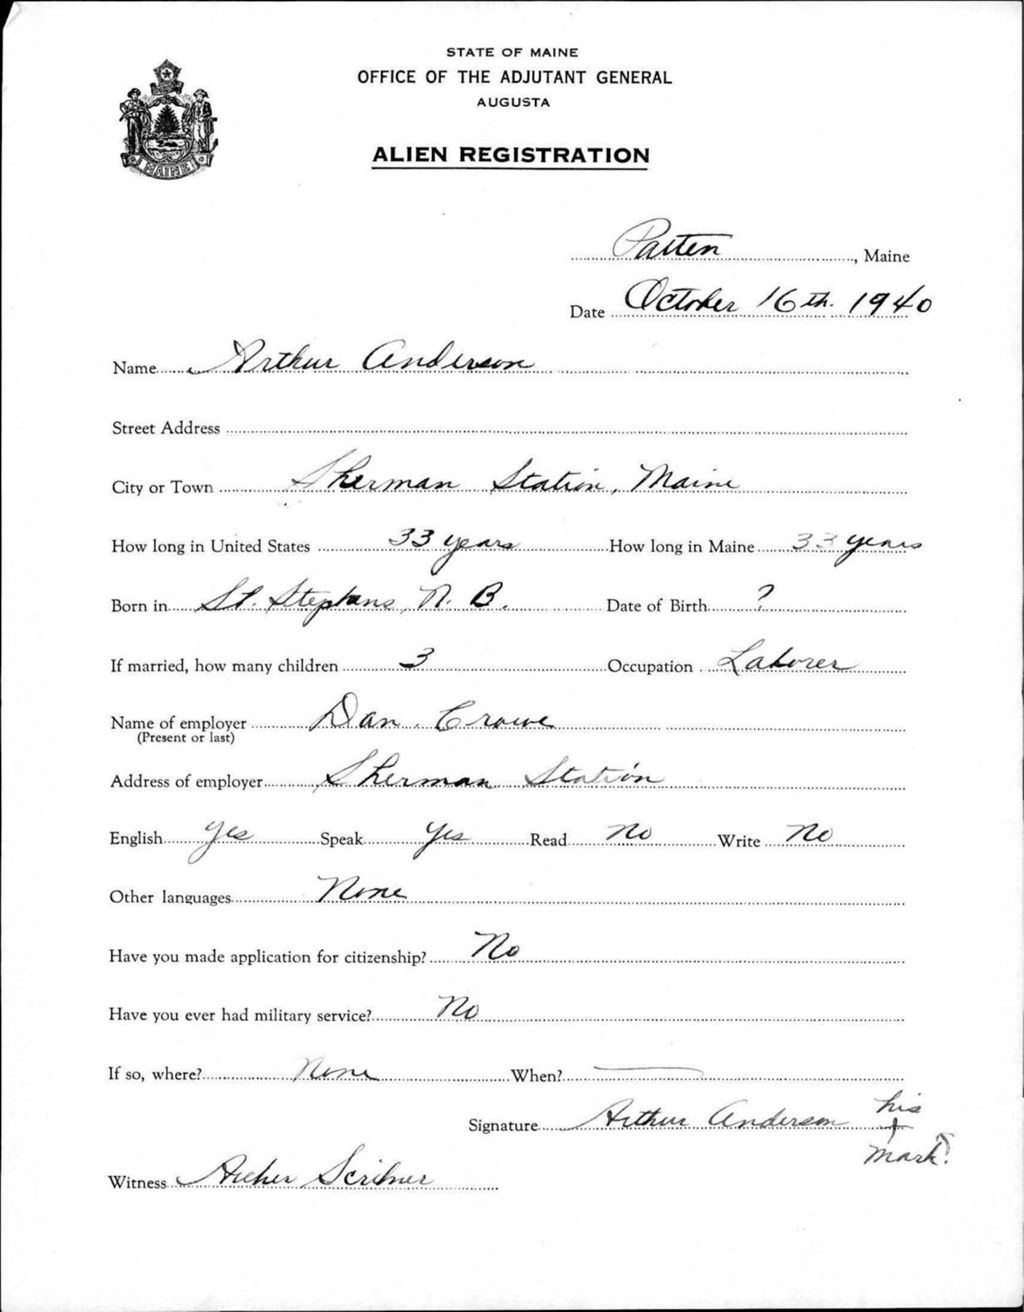 STATE OF MAINE
OFFICE OF THE ADJUTANT GENERAL
AUGUSTA
ALIEN REGISTRATION
MAINE
Patten, Maine
Date October 16th. 1940
Name Arthur Anderson
Street Address
City or Town Sherman Station, Maine
How long in United States 33 years How long in Maine 33 years
Born in St. Stephens, N. B. Date of Birth ?
If married, how many children 3 Occupation Laborer
Name of employer Dan. Crowe
(Present or last)
Address of employer Sherman Station
English Yes Speak Yes Read No Write No
Other languages None
Have you made application for citizenship? No
Have you ever had military service? No
If so, where? None When? —
his
Signature Arthur Anderson +
mark.
Witness Archer Scribner